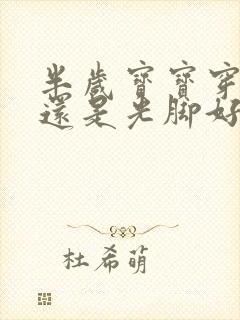 半歲寶寶穿
還是光脚好
杜希萌